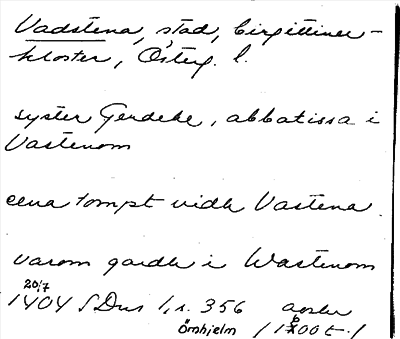 Vadstena, stad, birgittiner-
kloster, Österg. l.
syster Gerdeke, abbatissa i
Vastenom
eena tompt vidh Vastena.
varom gardh i Wastenom
20/7
1404 SDns 1, s. 356
Örnhjelm / 1800 t. /